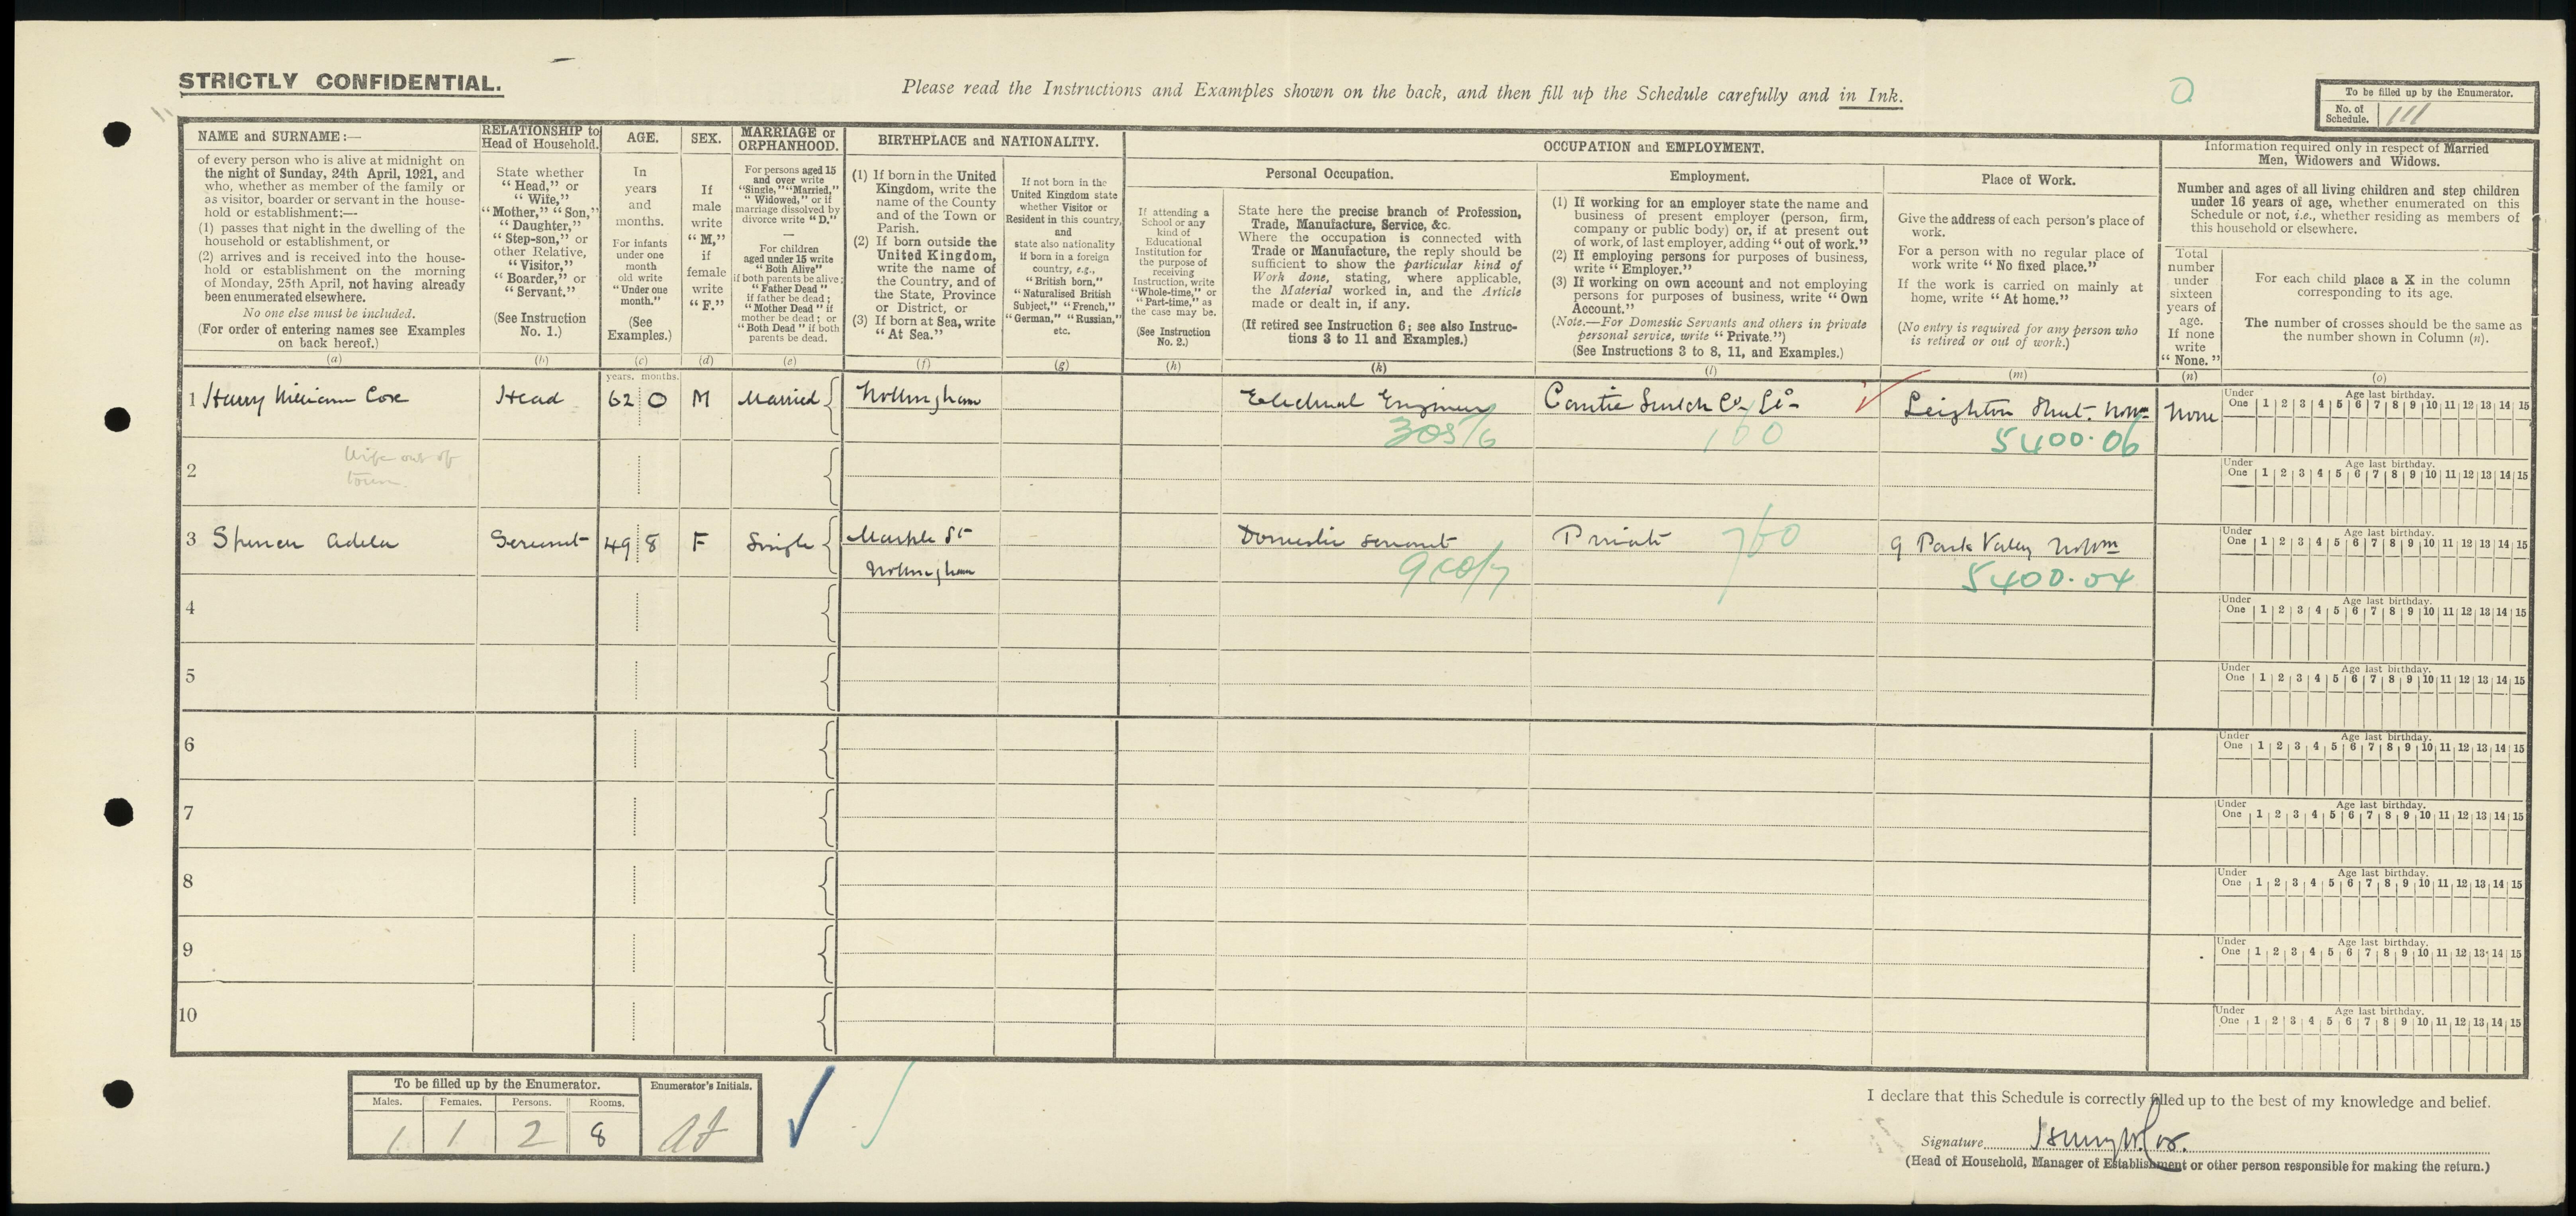 STRICTLY CONFIDENTIAL.
Please read the Instructions and Examples shown on the back, and then fill up the Schedule carefully and in Ink.
To be filled up by the Enumerator.
No. of Schedule. 111
NAME and SURNAME:—
of every person who is alive at midnight on
the night of Sunday, 24th April, 1921, and
who, whether as member of the family or
as visitor, boarder or servant in the house-
hold or establishment:—
(1) passes that night in the dwelling of the
household or establishment, or
(2) arrives and is received into the house-
hold or establishment on the morning
of Monday, 25th April, not having already
been enumerated elsewhere.
No one else must be included.
(For order of entering names see Examples
on back hereof.)
(a)
RELATIONSHIP to
Head of Household.
State whether
"Head," or
"Wife,"
"Mother," "Son,"
"Daughter,"
"Step-son," or
other Relative,
"Visitor,"
"Boarder," or
"Servant."
(See Instruction
No. 1.)
(b)
AGE.
In
years
and
months.
For infants
under one
month
old write
"Under one
month."
(See
Examples.)
(c)
SEX.
If
male
write
"M,"
if
female
write
"F."
(d)
MARRIAGE or
ORPHANHOOD.
For persons aged 15
and over write
"Single," "Married,"
"Widowed," or if
marriage dissolved by
divorce write "D."
—
For children
aged under 15 write
"Both Alive"
if both parents be alive;
"Father Dead"
if father be dead;
"Mother Dead" if
mother be dead; or
"Both Dead" if both
parents be dead.
(e)
BIRTHPLACE and NATIONALITY.
(1) If born in the United
Kingdom, write the
name of the County
and of the Town or
Parish.
(2) If born outside the
United Kingdom,
write the name of
the Country, and of
the State, Province
or District, or
(3) If born at Sea, write
"At Sea."
(f)
If not born in the
United Kingdom state
whether Visitor or
Resident in this country,
and
state also nationality
if born in a foreign
country, e.g.,
"British born,"
"Naturalised British
Subject," "French,"
"German," "Russian,"
etc.
(g)
OCCUPATION and EMPLOYMENT.
If attending a
School or any
kind of
Educational
Institution for
the purpose of
receiving
Instruction, write
"Whole-time," or
"Part-time," as
the case may be.
(See Instruction
No. 2.)
(h)
Personal Occupation.
State here the precise branch of Profession,
Trade, Manufacture, Service, &c.
Where the occupation is connected with
Trade or Manufacture, the reply should be
sufficient to show the particular kind of
Work done, stating, where applicable,
the Material worked in, and the Article
made or dealt in, if any.
(If retired see Instruction 6; see also Instruc-
tions 3 to 11 and Examples.)
(k)
Employment.
(1) If working for an employer state the name and
business of present employer (person, firm,
company or public body) or, if at present out
of work, of last employer, adding "out of work."
(2) If employing persons for purposes of business,
write "Employer."
(3) If working on own account and not employing
persons for purposes of business, write "Own
Account."
(Note.—For Domestic Servants and others in private
personal service, write "Private.")
(See Instructions 3 to 8, 11, and Examples.)
(l)
Place of Work.
Give the address of each person's place of
work.
For a person with no regular place of
work write "No fixed place."
If the work is carried on mainly at
home, write "At home."
(No entry is required for any person who
is retired or out of work.)
(m)
Information required only in respect of Married
Men, Widowers and Widows.
Number and ages of all living children and step children
under 16 years of age, whether enumerated on this
Schedule or not, i.e., whether residing as members of
this household or elsewhere.
Total
number
under
sixteen
years of
age.
If none
write
"None."
(n)
For each child place a X in the column
corresponding to its age.
The number of crosses should be the same as
the number shown in Column (n).
(o)
years. months.
1 Henry William Cox Head 62 0 M Married Nottingham Electrical Engineer Leighton Street. Nottm None
305/6 160 5400.06
Under One Age last birthday. 1 2 3 4 5 6 7 8 9 10 11 12 13 14 15
2 Wife out of
town.
Under One Age last birthday. 1 2 3 4 5 6 7 8 9 10 11 12 13 14 15
3 Spencer Adela Servant 49 8 F Single St Domestic servant Private 760 9 Park Valley Nottm
Nottingham 900/7 5400.04
Under One Age last birthday. 1 2 3 4 5 6 7 8 9 10 11 12 13 14 15
4
Under One Age last birthday. 1 2 3 4 5 6 7 8 9 10 11 12 13 14 15
5
Under One Age last birthday. 1 2 3 4 5 6 7 8 9 10 11 12 13 14 15
6
Under One Age last birthday. 1 2 3 4 5 6 7 8 9 10 11 12 13 14 15
7
Under One Age last birthday. 1 2 3 4 5 6 7 8 9 10 11 12 13 14 15
8
Under One Age last birthday. 1 2 3 4 5 6 7 8 9 10 11 12 13 14 15
9
Under One Age last birthday. 1 2 3 4 5 6 7 8 9 10 11 12 13 14 15
10
Under One Age last birthday. 1 2 3 4 5 6 7 8 9 10 11 12 13 14 15
To be filled up by the Enumerator. Enumerator's Initials.
Males. Females. Persons. Rooms.
1 1 2 8
I declare that this Schedule is correctly filled up to the best of my knowledge and belief.
Signature Henry W. Cox.
(Head of Household, Manager of Establishment or other person responsible for making the return.)